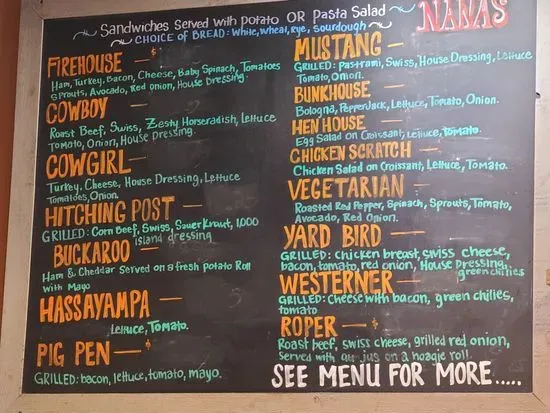 Sandwiches Served with Potato OR Pasta Salad
NANAS
CHOICE OF BREAD: White, wheat, rye, sourdough
FIREHOUSE — $
Ham, Turkey, Bacon, Cheese, Baby Spinach, Tomatoes
Sprouts, Avocado, Red onion, House Dressing.
COWBOY
Roast Beef, Swiss, Zesty Horseradish, Lettuce
Tomato, Onion, House Dressing.
COWGIRL—
Turkey, Cheese, House Dressing, Lettuce
Tomatoes, Onion.
HITCHING POST —
GRILLED: Corn Beef, Swiss, Sauer Kraut, 1,000
island dressing
BUCKAROO —
Ham & Cheddar Served on a fresh potato Roll
with Mayo
HASSAYAMPA —
Lettuce, Tomato.
PIG PEN — $
GRILLED: bacon, lettuce, tomato, mayo.
MUSTANG —
GRILLED: Pastrami, Swiss, House Dressing, Lettuce
Tomato, Onion.
BUNKHOUSE —
Bologna, PepperJack, Lettuce, Tomato, Onion.
HEN HOUSE —
Egg Salad on Croissant, Lettuce, tomato.
CHICKEN SCRATCH —
Chicken Salad on Croissant, Lettuce, Tomato.
VEGETARIAN —
Roasted Red Pepper, Spinach, Sprouts, Tomato,
Avocado, Red Onion.
YARD BIRD —
GRILLED: Chicken breast, swiss cheese,
bacon, tomato, red onion, House Dressing,
green chilies
WESTERNER —
GRILLED: Cheese with bacon, green chilies,
tomato
ROPER — $
Roast beef, swiss cheese, grilled red onion,
Served with au jus on a hoagie roll.
SEE MENU FOR MORE.....